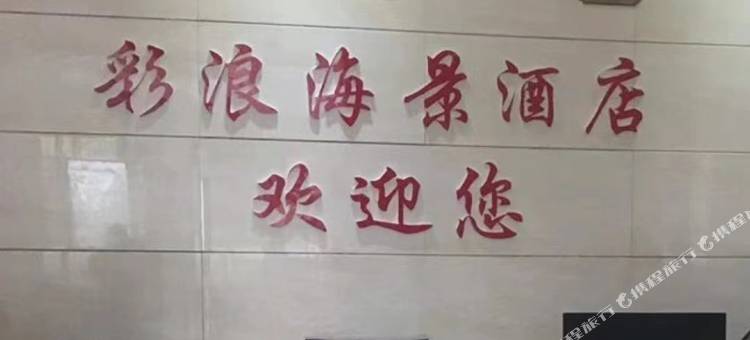 彩浪海景酒店
欢迎您
携程旅行
携程旅行